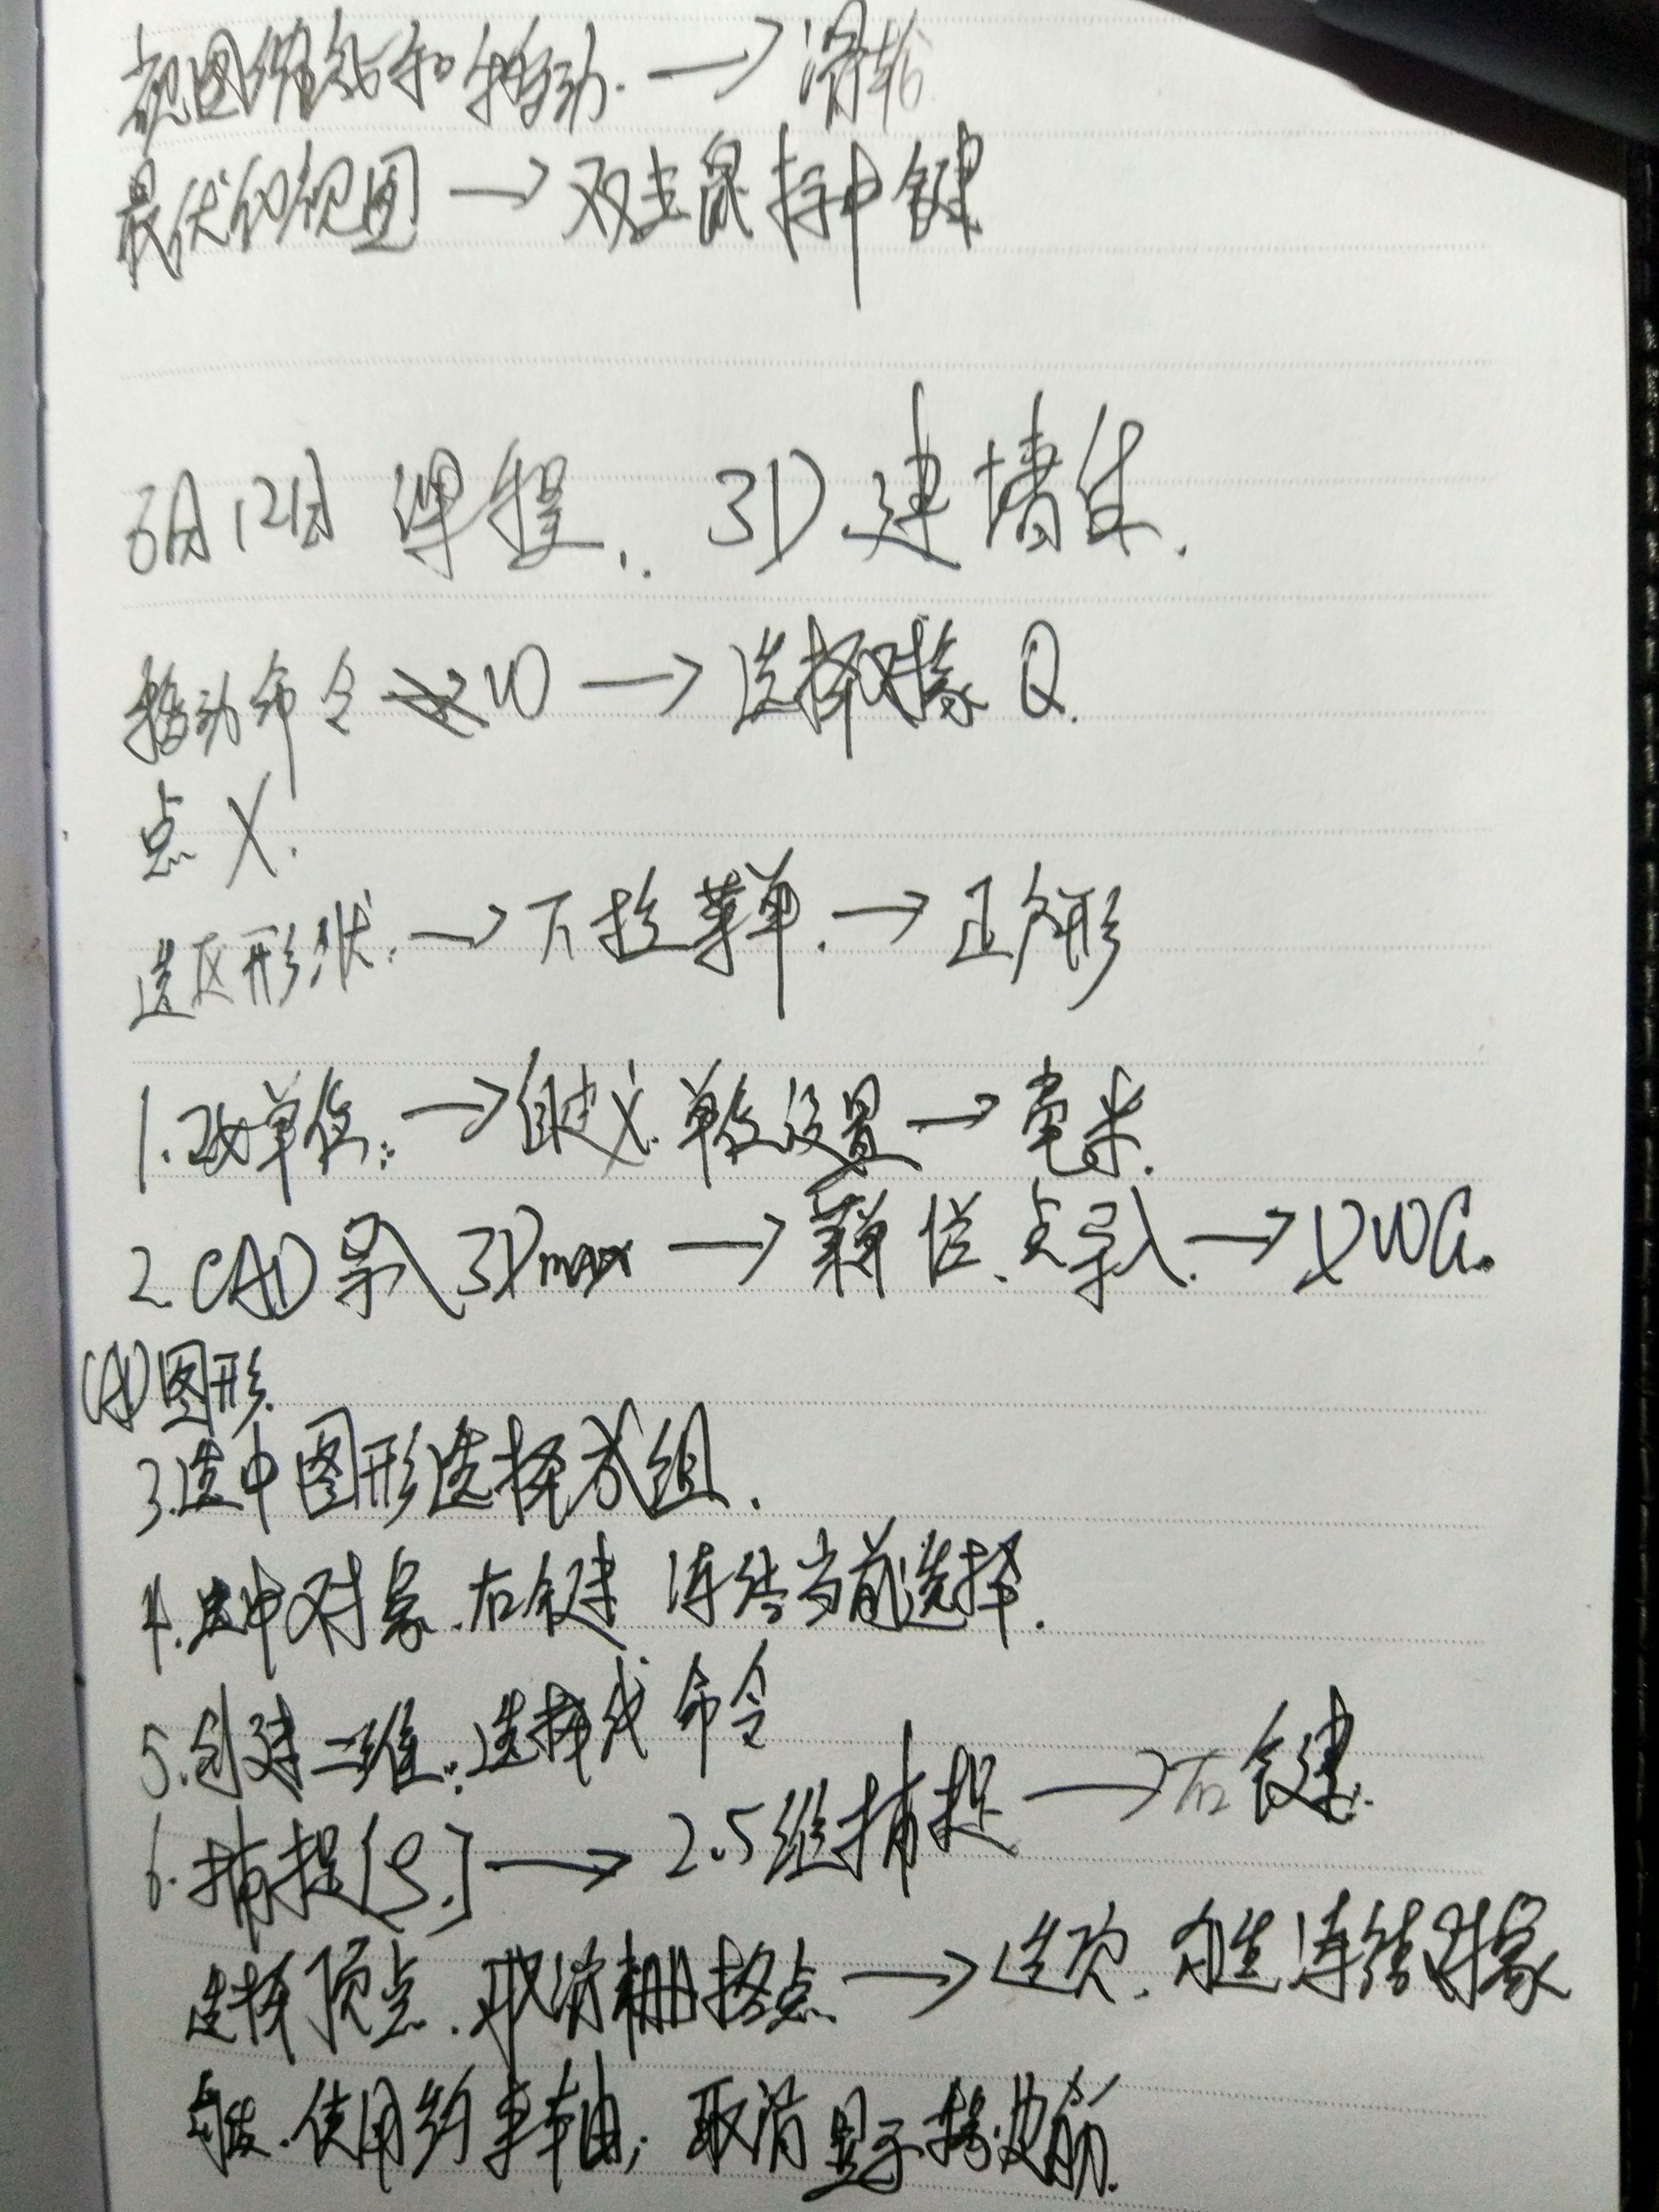 视图缩放和移动.→滑轮
最优的视图→双击鼠标中键
6月12日 课程. 3D建墙体.
移动命令 W→选择对象 Q.
点 X.
选区形状:→下拉菜单.→正方形
1.改单位:→自定义.单位设置→毫米.
2.CAD导入3Dmax→菜单栏.点导入.→DWG.
CAD图形.
3.选中图形选择成组.
4.选中对象.右键 冻结当前选择.
5.创建二维:选择线命令
6.捕捉[S.]→2.5维捕捉→右键.
选择顶点.取消栅格点→选项.勾选冻结对象
勾选.使用约束轴;取消显示橡皮筋.